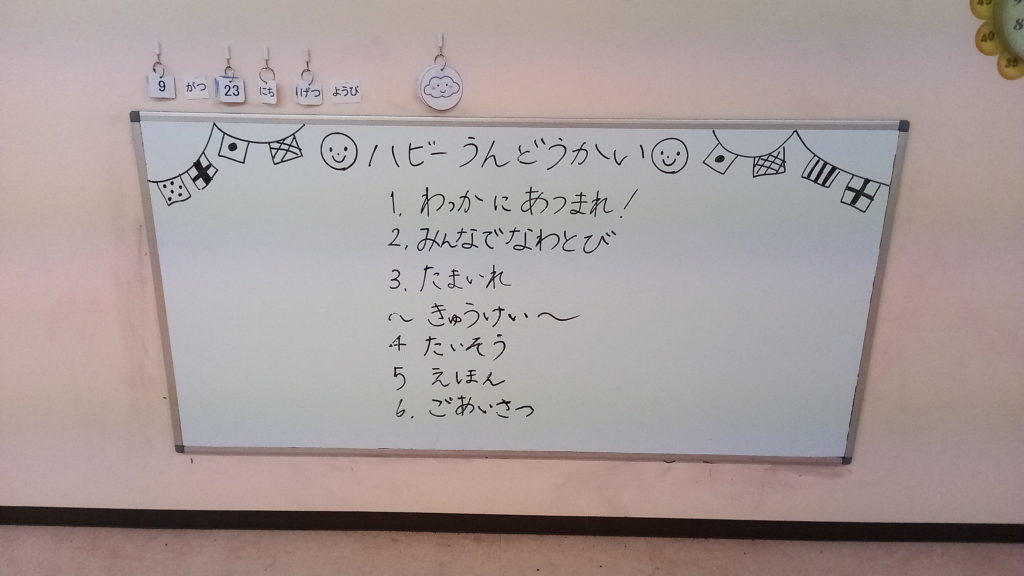 9 がつ 23 にち げつ ようび
ハビーうんどうかい
1. わっかにあつまれ!
2. みんなでなわとび
3. たまいれ
～きゅうけい～
4 たいそう
5 えほん
6. ごあいさつ
45
40
35
9
8